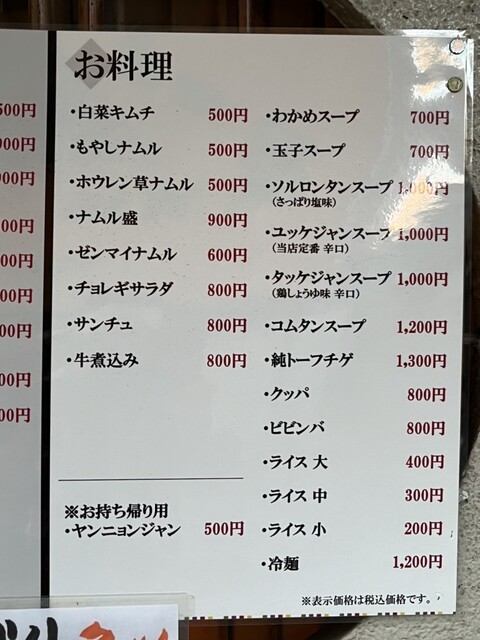 お料理
・白菜キムチ 500円
・もやしナムル 500円
・ホウレン草ナムル 500円
・ナムル盛 900円
・ゼンマイナムル 600円
・チョレギサラダ 800円
・サンチュ 800円
・牛煮込み 800円
※お持ち帰り用
・ヤンニョンジャン 500円
・わかめスープ 700円
・玉子スープ 700円
・ソルロンタンスープ 1,000円
（さっぱり塩味）
・ユッケジャンスープ 1,000円
（当店定番 辛口）
・タッケジャンスープ 1,000円
（鶏しょうゆ味 辛口）
・コムタンスープ 1,200円
・純トーフチゲ 1,300円
・クッパ 800円
・ビビンバ 800円
・ライス 大 400円
・ライス 中 300円
・ライス 小 200円
・冷麺 1,200円
※表示価格は税込価格です。